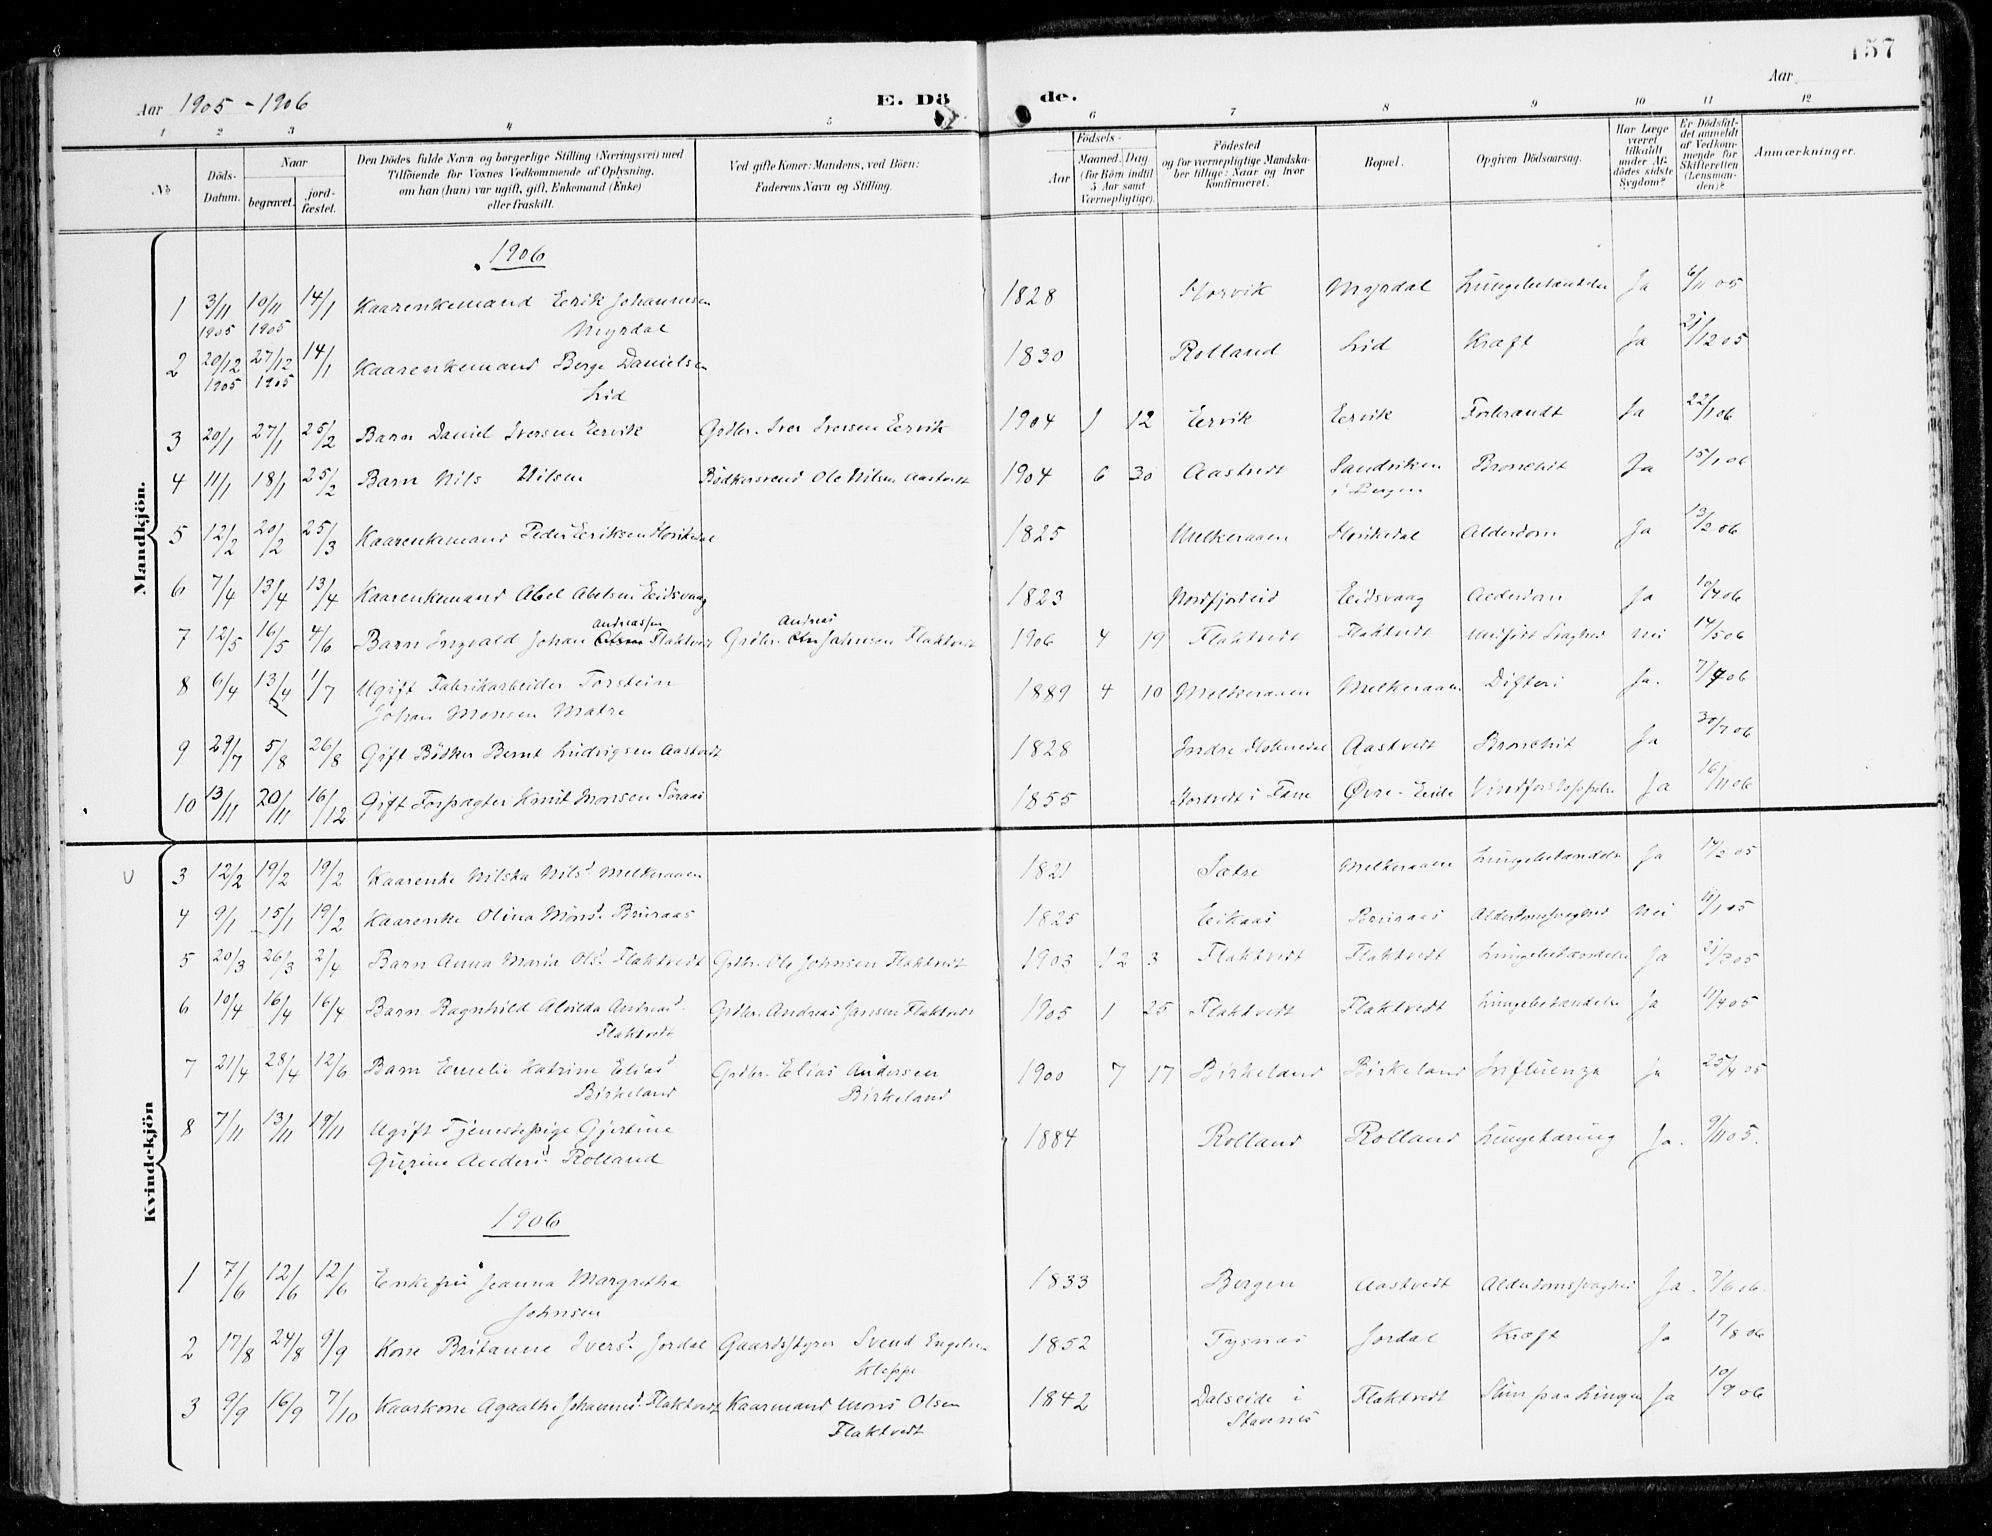 157
Aar 1905-1906
E. Dö de.
Aar
1 2 3 4 5 6 7 8 9 10 11 12
No
Döds-Datum.
Naar
begravet.
jord-fæstet.
Den Dödes fulde Navn og borgerlige Stilling (Næringsvei) med
Tilföiende for Voxnes Vedkommende af Oplysning,
om han (hun) var ugift, gift, Enkemand (Enke)
eller fraskilt.
Ved gifte Koner: Mandens, ved Börn:
Faderens Navn og Stilling.
Födsels-
Aar
Maaned. Dag.
(for Börn indtil
5 Aar samt
Værnepligtige).
Födested
og for værnepligtige Mandska-
ber tillige: Naar og hvor
konfirmeret.
Bopæl.
Opgiven Dödsaarsag.
Har Læge
været
tilkaldt
under Af-
dödes sidste
Sygdom?
Er Dödsfal-
det anmeldt
af Vedkom-
mende for
Skifteretten
(Lensman-
den)?
Anmærkninger.
Mandkjön.
1906
1 3/11 10/11 14/1 Kaarenkemand Eerik Johannesen 1828 Myrdal Lungebetændelse Ja 6/11 05
1905 1905 Myrdal
2 20/12 27/12 14/1 Kaarenkemand Berge Danielsen 1830 Rolland Lid Kræft Ja 21/12 05
1905 1905 Lid
3 20/1 27/1 25/2 Barn Daniel Iversen Eervik Grdbr. Iver Iversen Eervik 1904 1 12 Eervik Eervik Forbrændt Ja 22/1 06
4 11/1 18/1 25/2 Barn Nils Nilsen Bödkersvend Ole Nilsen Aastvedt 1904 6 30 Aastvedt Sandviken Bronchit Ja 15/1 06
i Bergen
5 12/2 20/2 25/3 Kaarenkemand Peder Eriksen 1825 Melkeraaen Alderdom Ja 13/2 06
6 7/4 13/4 13/4 Kaarenkemand Abel Abelsen Eidsvaag 1823 Nordfjordeid Eidsvaag Alderdom Ja 10/4 06
Andreassen Andreas
7 12/5 16/5 4/6 Barn Ingvald Johan Flaktvedt Grdbr. Johnsen Flaktvedt 1906 4 19 Flaktvedt Flaktvedt Medfødt Svaghed Nei 14/5 06
8 6/4 13/4 1/7 Ugift Fabrikarbeider Torstein 1889 4 10 Melkeraaen Melkeraaen Difteri Ja. 7/4 06
Johan Monsen Matre
9 29/7 5/8 26/8 Gift Bödker Bernt Ludvigsen Aastvedt 1828 Indre Holmedal Aastvedt Bronchit Ja 30/7 06
10 13/11 20/11 16/12 Gift Forpagter Knut Monsen Söraas 1855 i Fane Øvre-Eide Ja 16/11 06
Kvindekjön
3 12/2 19/2 19/2 Kaarenke Nilska Nilsd Melkeraaen 1821 Sætre Melkeraaen Lungebetændelse Ja 17/2 05
4 9/1 15/1 19/2 Kaarenke Olina Monsd. Bruraas 1825 Eikaas Bruraas Alderdomssvaghed Nei 11/1 05
5 20/3 26/3 2/4 Barn Anna Maria Olsd. Flaktvedt Grdbr. Ole Johnsen Flaktvedt 1903 12 3 Flaktvedt Flaktvedt Lungebetændelse Ja 21/3 05
6 10/4 16/4 16/4 Barn Ragnhild Alvilda Andreasd. Grdbr. Andreas Jansen Flaktvedt 1905 1 25 Flaktvedt Flaktvedt Lungebetændelse Ja 11/4 05
Flaktvedt
7 21/4 28/4 12/6 Barn Emelie Katrine Eliasd Grdbr. Elias Andersen 1900 7 17 Birkeland Birkeland Influenza ja 25/4 05
Birkeland Birkeland
8 7/11 13/11 19/11 Ugift Tjenestepige Gjertine 1884 Rolland Rolland Lungetæring Ja. 9/11 05.
Gurine Andersd Rolland
1906
1 7/6 12/6 12/6 Enkefru Jeanna Margretha 1833 Bergen Aastvedt Alderdomssvaghed Ja. 7/6 06.
Johnsen
2 17/8 24/8 9/9 Kone Britanne Iversd Jordal Gaardstyrer Svend Engelsen 1852 Tysnæs Jordal Kræft Ja 17/8 06
Kleppe
3 9/9 16/9 7/10 Kaarkone Agaathe Johannesd. Flaktvedt Kaarmand Mons Olsen 1842 Dalseide i Flaktvedt Slim paa Lungen Ja 10/9 06
Flaktvedt Stavenes